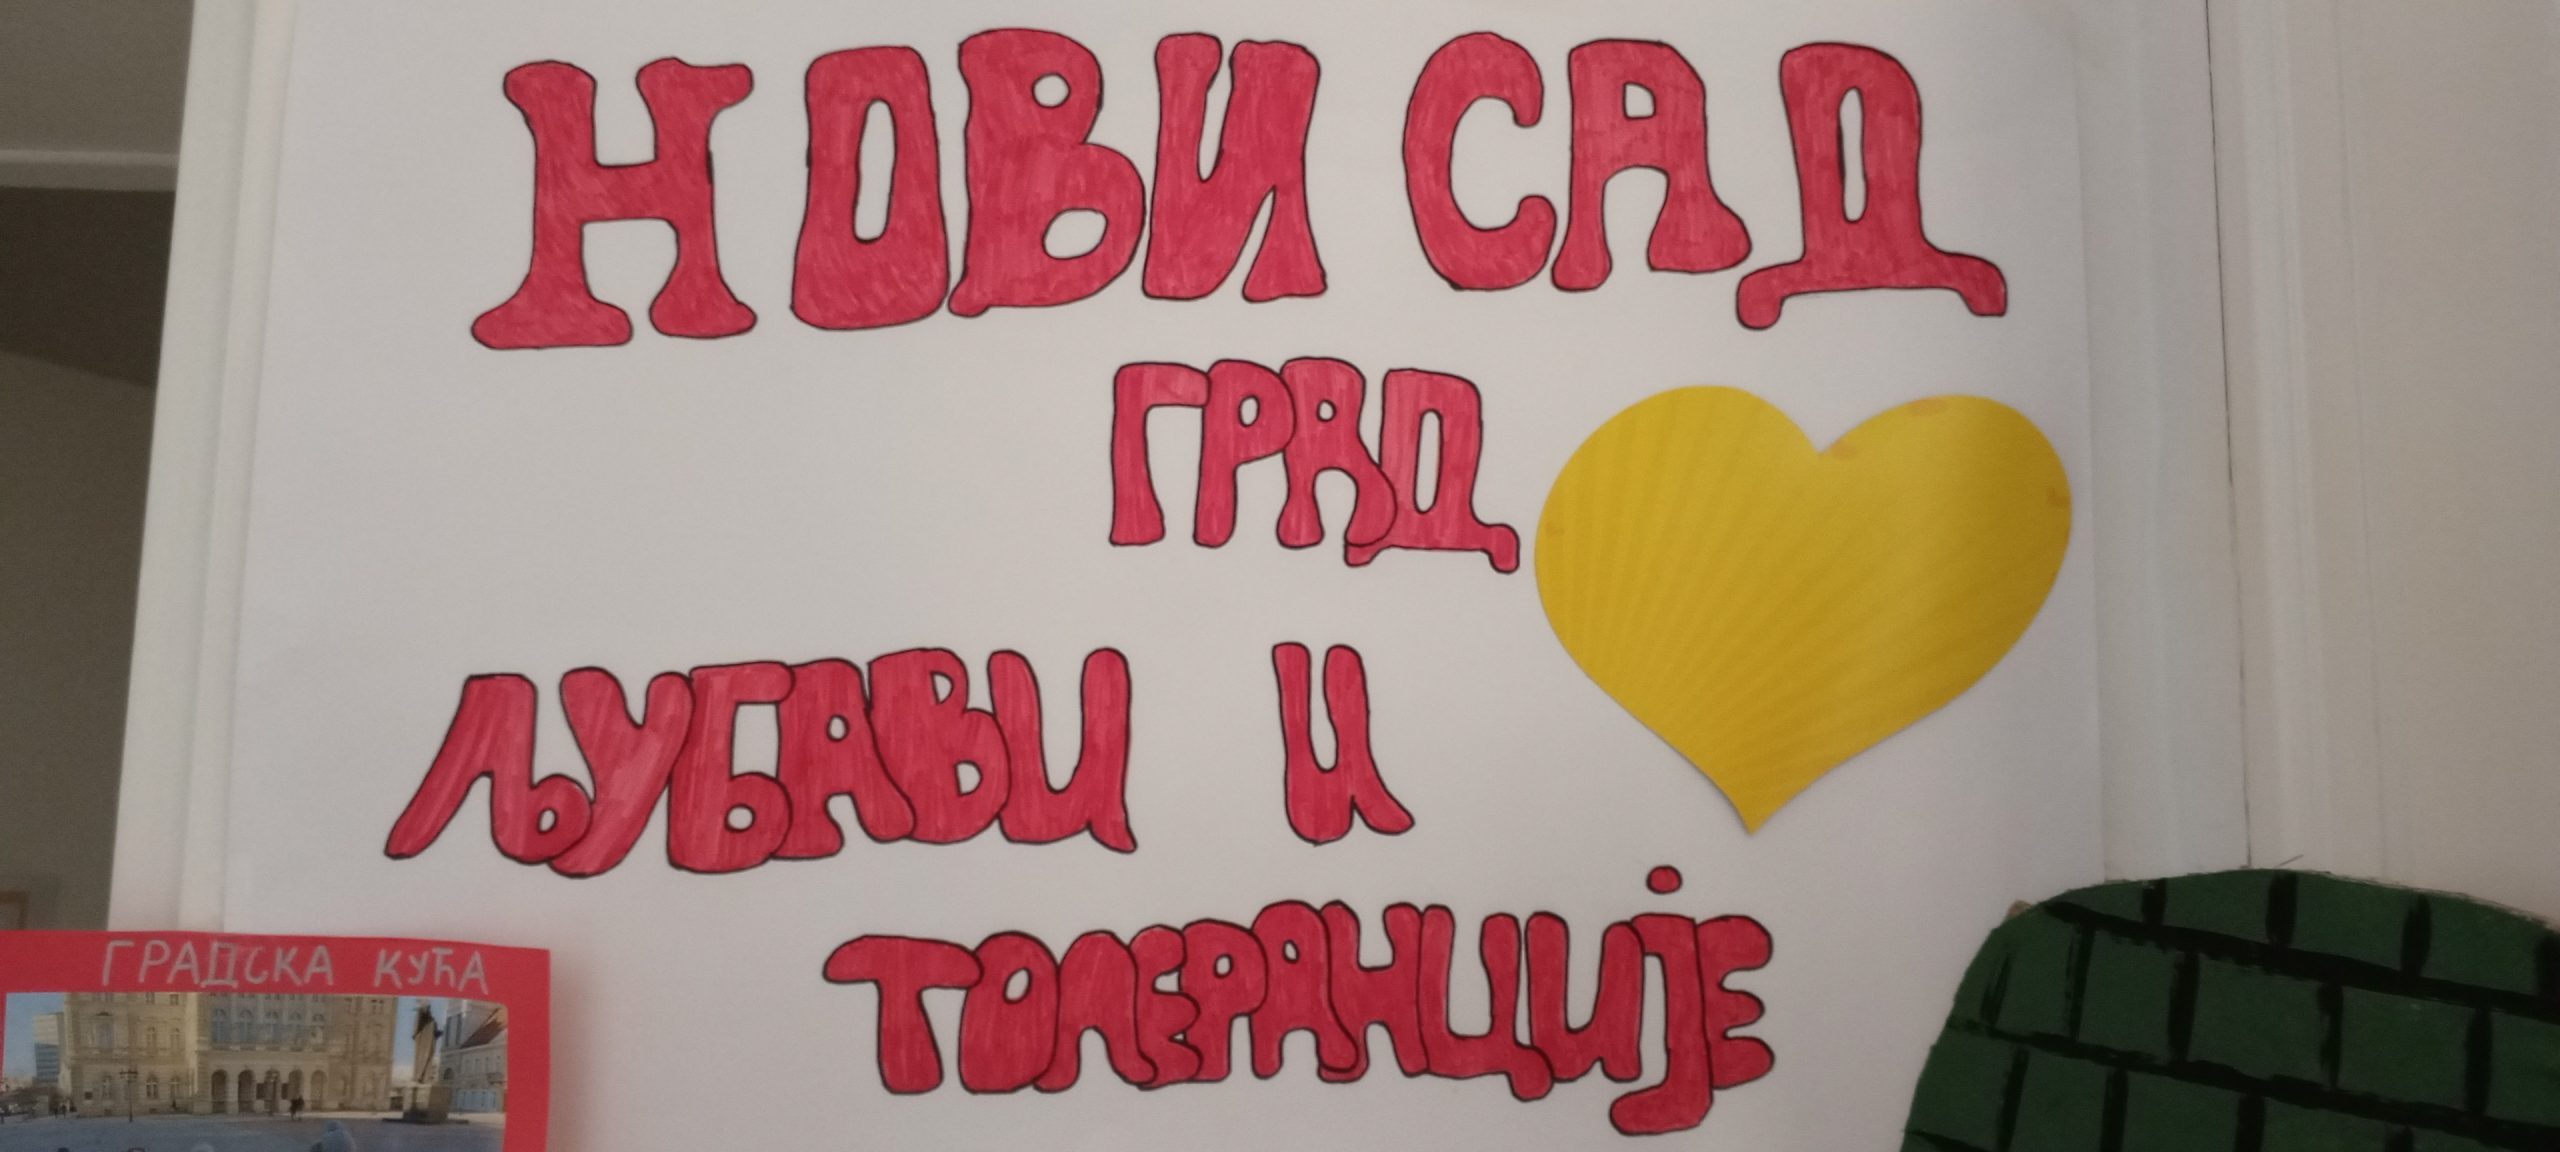 НОВИ САД
ГРАД
ЉУБАВИ И
ТОЛЕРАНЦИЈЕ
ГРАДСКА КУЋА